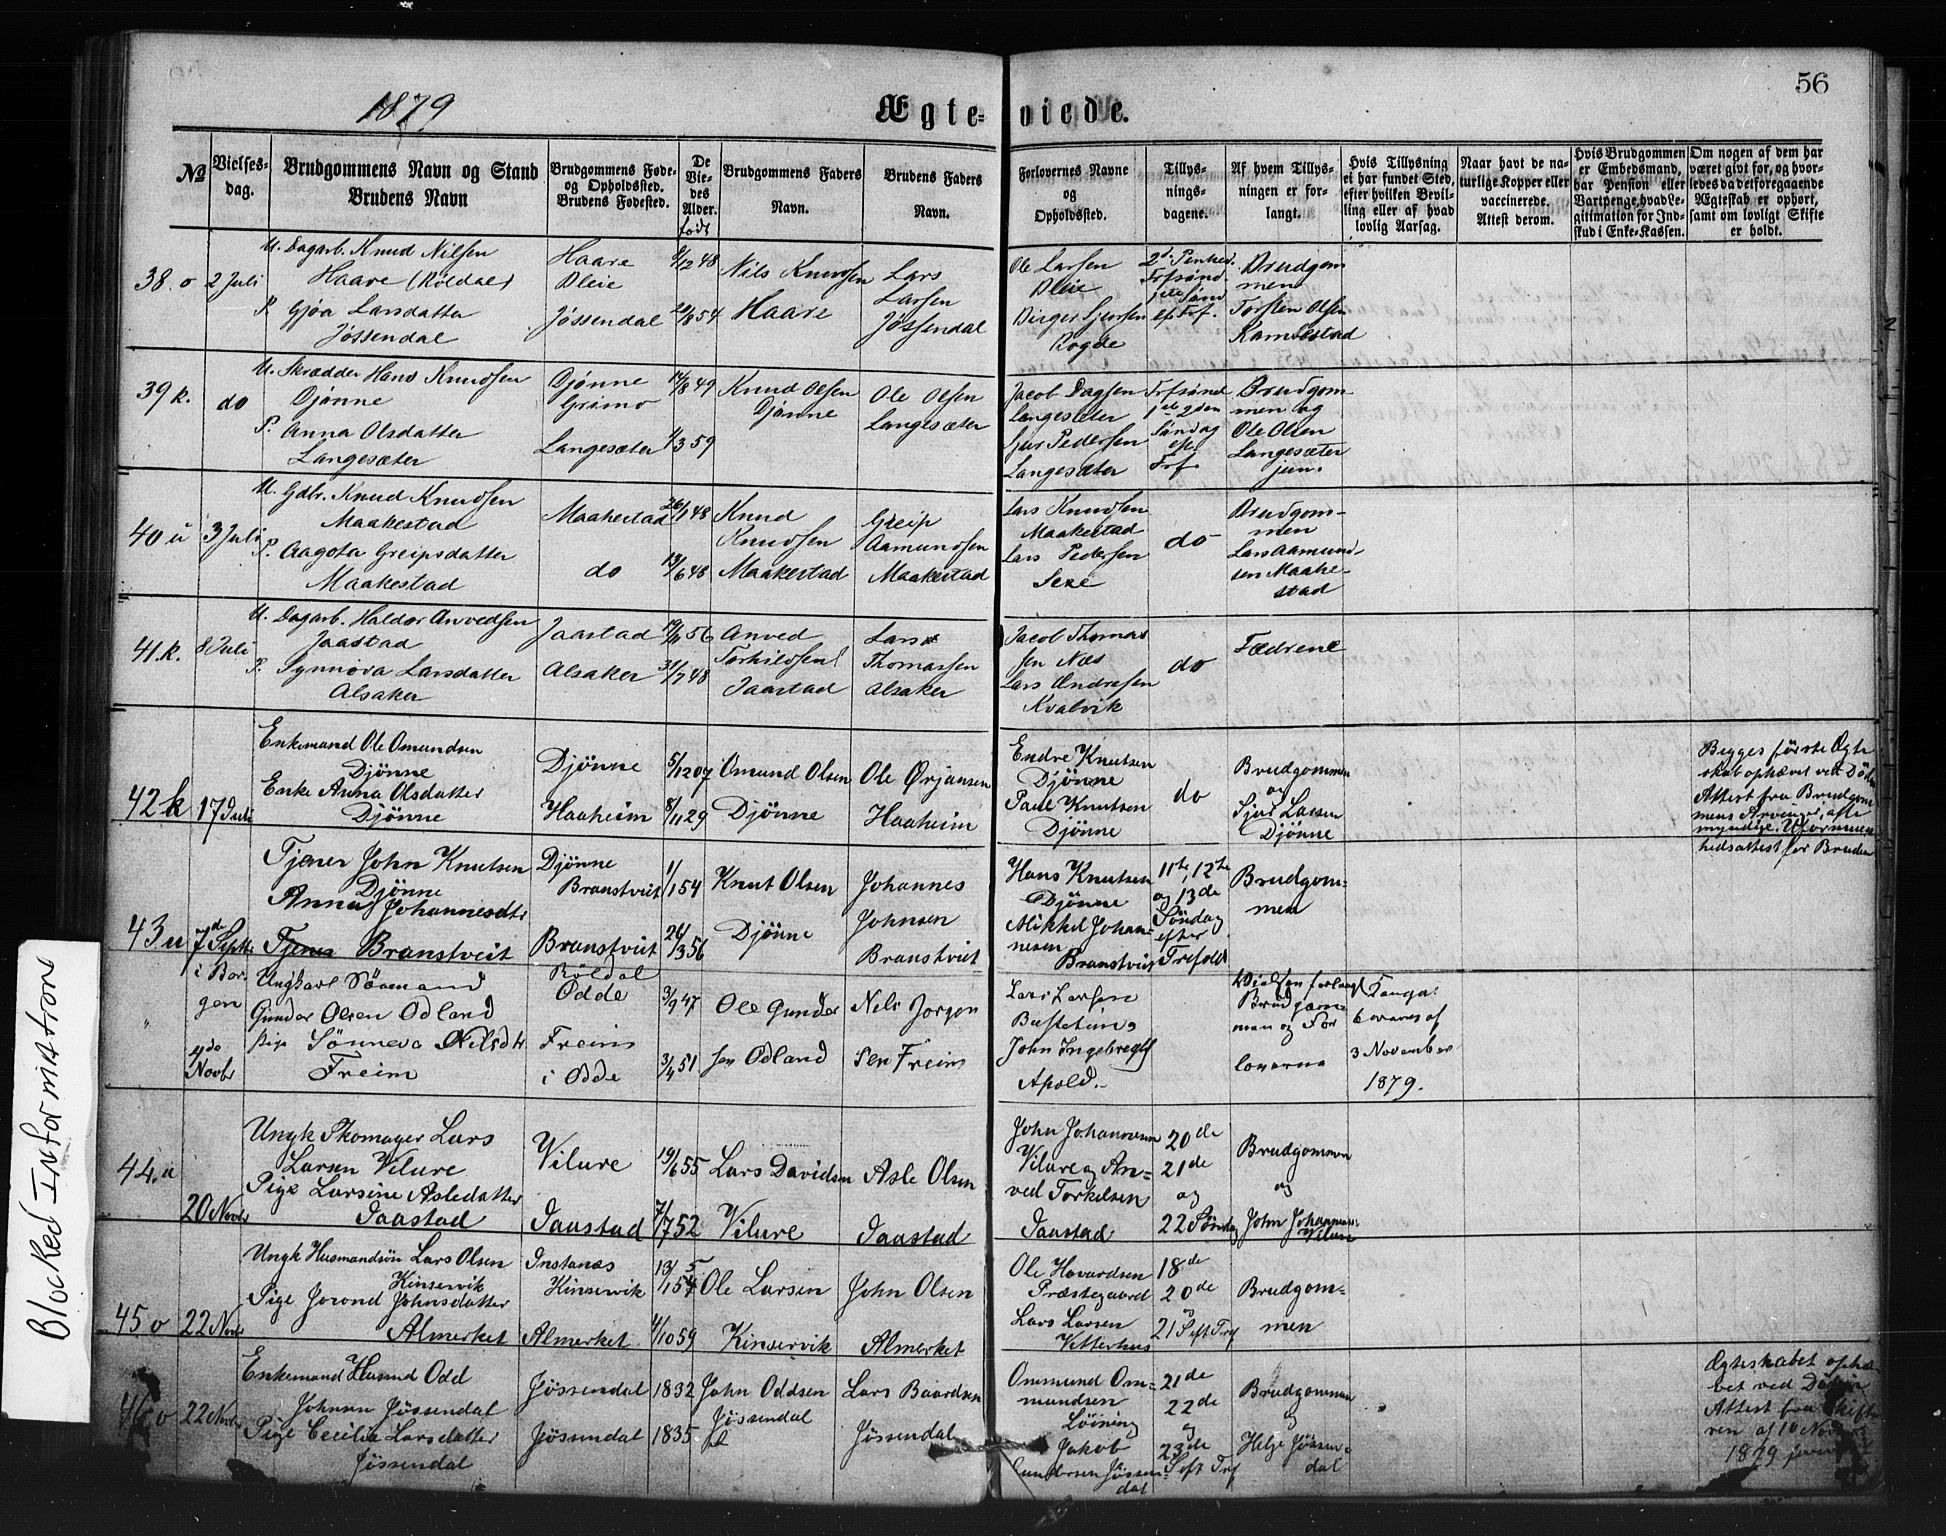 56
1879
Ægte-
viede.
№
Vielses-
dag.
Brudgommens Navn og Stand
Brudens Navn
Brudgommens Føde-
og Opholdssted.
Brudens Fødested.
De
Vie-
des
Alder.
født
Brudgommens Faders
Navn.
Brudens Faders
Navn.
Forlovernes Navne
og
Opholdssted.
Tillys-
nings-
dagene.
Af hvem Tillys-
ningen er for-
langt.
Hvis Tillysning
ei har fundet Sted,
efter hvilken Bevil-
ling eller af hvad
lovlig Aarsag.
Naar havt de na-
turlige Kopper eller
vaccinerede.
Attest derom.
Hvis Brudgommen
er Embedsmand,
har Pension eller
Vartpenge, hvad Le-
gitimation for Ind-
skud i Enke-Kassen.
Om nogen af dem har
været givt for, og hvor-
ledes da det foregaaende
Ægteskab er ophørt,
samt om lovligt Skifte
er holdt.
38. o
2 Juli
U. Dagarb. Knud Nilsen
Haare (Röldal)
P. Gjøa Larsdatter
Jøssendal
Haare
Bleie
Jøssendal
9/12 48
21/8 54
Nils Knudsen
Haare
Lars
Larsen
Jøssendal
Ole Larsen
Bleie
Birger Sjursen
Rogde
Brudgom
men
Torsten Olsen
Kambestad
39 k.
do
U. Skrædder Hans Knudsen
Djønne
P. Anna Olsdatter
Langesæter
Djønne
Grimo
Langesæter
14/8 49
1/3 59
Knud Olsen
Djønne
Ole Olsen
Langesæter
Jacob Dagsen
Langesæter
Sjur Pedersen
Langesæter
Trfsønd
1ste 2den
Søndag
efter
Trf.
Brudgom
men og
Ole Olsen
Langesæter
jun.
40 u
3 Juli
U. Gdbr. Knud Knudsen
Maakestad
P. Aagota Greipsdatter
Maakestad
Maakestad
do
26/1 48
13/6 48
Knud
Knudsen
Maakestad
Greip
Aamundsen
Maakestad
Lars Knudsen
Maakestad
Lars Pedersen
Sexe
do
Brudgom-
men
Lars Aamund-
sen Maake-
stad
41. k.
8 Juli
U. Dagarb. Haldor Anvedsen
Jaastad
P. Synnøva Larsdatter
Alsaker
Jaastad
Alsaker
19/11 56
31/7 48
Anved
Torkildsen
Jaastad
Lars
Thomassen
Alsaker
Jacob Thomas
sen Næs
Lars Andresen
Kvalvik
do
Fædrene
42 k
17 Juli
Enkemand Ole Omundsen
Djönne
Enke Anna Olsdatter
Djönne
Djönne
Haaheim
5/12 07
8/11 29
Omund Olsen
Djönne
Ole Ørjansen
Haaheim
Endre Knutsen
Djönne
Paul Knutsen
Djönne
do
Brudgommen
og
Sjur Larsen
Djönne
Begges förste Ægte
skab ophævet ved Död
Attest fra Brudgom
mens Arvinger, alle
myndige. Uformuen
hedsattest for Bruden
43 u
7de Septb
Tjener John Knutsen
Djönne
Anna Johannesdtr
Tjener Branstveit
Djönne
Branstveit
Branstveit
1/1 54
26/3 56
Knut Olsen
Djönne
Johannes
Johnsen
Branstveit
Hans Knutsen
Djönne
Mikkel Johan-
nesen
Branstveit
11te, 12te
og 13de
Söndag
efter
Trefold
Brudgom-
men
"
i Ber-
gen
4de
Novbr
Ungkarl Sömand
Gunder Olsen Odland
Pige Sönneva Nilsdtr
Freim
Röldal
Odde
Freim
i Odde
3/9 47
3/4 51
Ole Gunder
sen Odland
Nils Jorgen
sen Freim
Lars Larsen
Bustetun,
John Ingebregts
Apold.
Vielsen forlangt
Brudgom
men og For
loverne
Konga:
brevet af
3 November
1879.
44. u
20 Novbr
Ungk Skomager Lars
Larsen Vilure
Pige Larsine Asledatter
Jaastad
Vilure
Jaastad
19/6 55
7/7 52
Lars Davidsen
Vilure
Asle Olsen
Jaastad
John Johannesen
Vilure og An-
ved Torkelsen
Jaastad
20de
21de
og
22 Söndag
Brudgommen
og
John Johannes:
Vilure
45 o
22 Novbr
Ungk Husmandsön Lars Olsen
Kinservik
Pige Jorond Johnsdatter
Almerket
Instanes
Kinservik
Almerket.
13/1 54
4/10 59
Ole Larsen
Kinservik
John Olsen
Almerket
Ole Havardsen
Præstegaard
Lars Larsen
Vetterhus
18de
20de
21 S eft Trf
Brudgom-
men
46 o
22 Novbr
Enkemand Husmd Odd
Johnsen Jössendal
Pige Cecilia Larsdatter
Jössendal
Jössendal
Jössendal
1832
1835
John Oddsen
Jössendal
Lars Baardsen
Jössendal
Ommund Om-
mundsen
Löining
Jakob
Gundersen Jössen-
dal
21de
22de
og
23de
S eft Trf
Brudgommen
og
Helje Jössen-
dal
Ægteskabet ophæ
vet ved Döden
Attest fra Skifte
ren af 10 Novbr
1879
Blocked Information